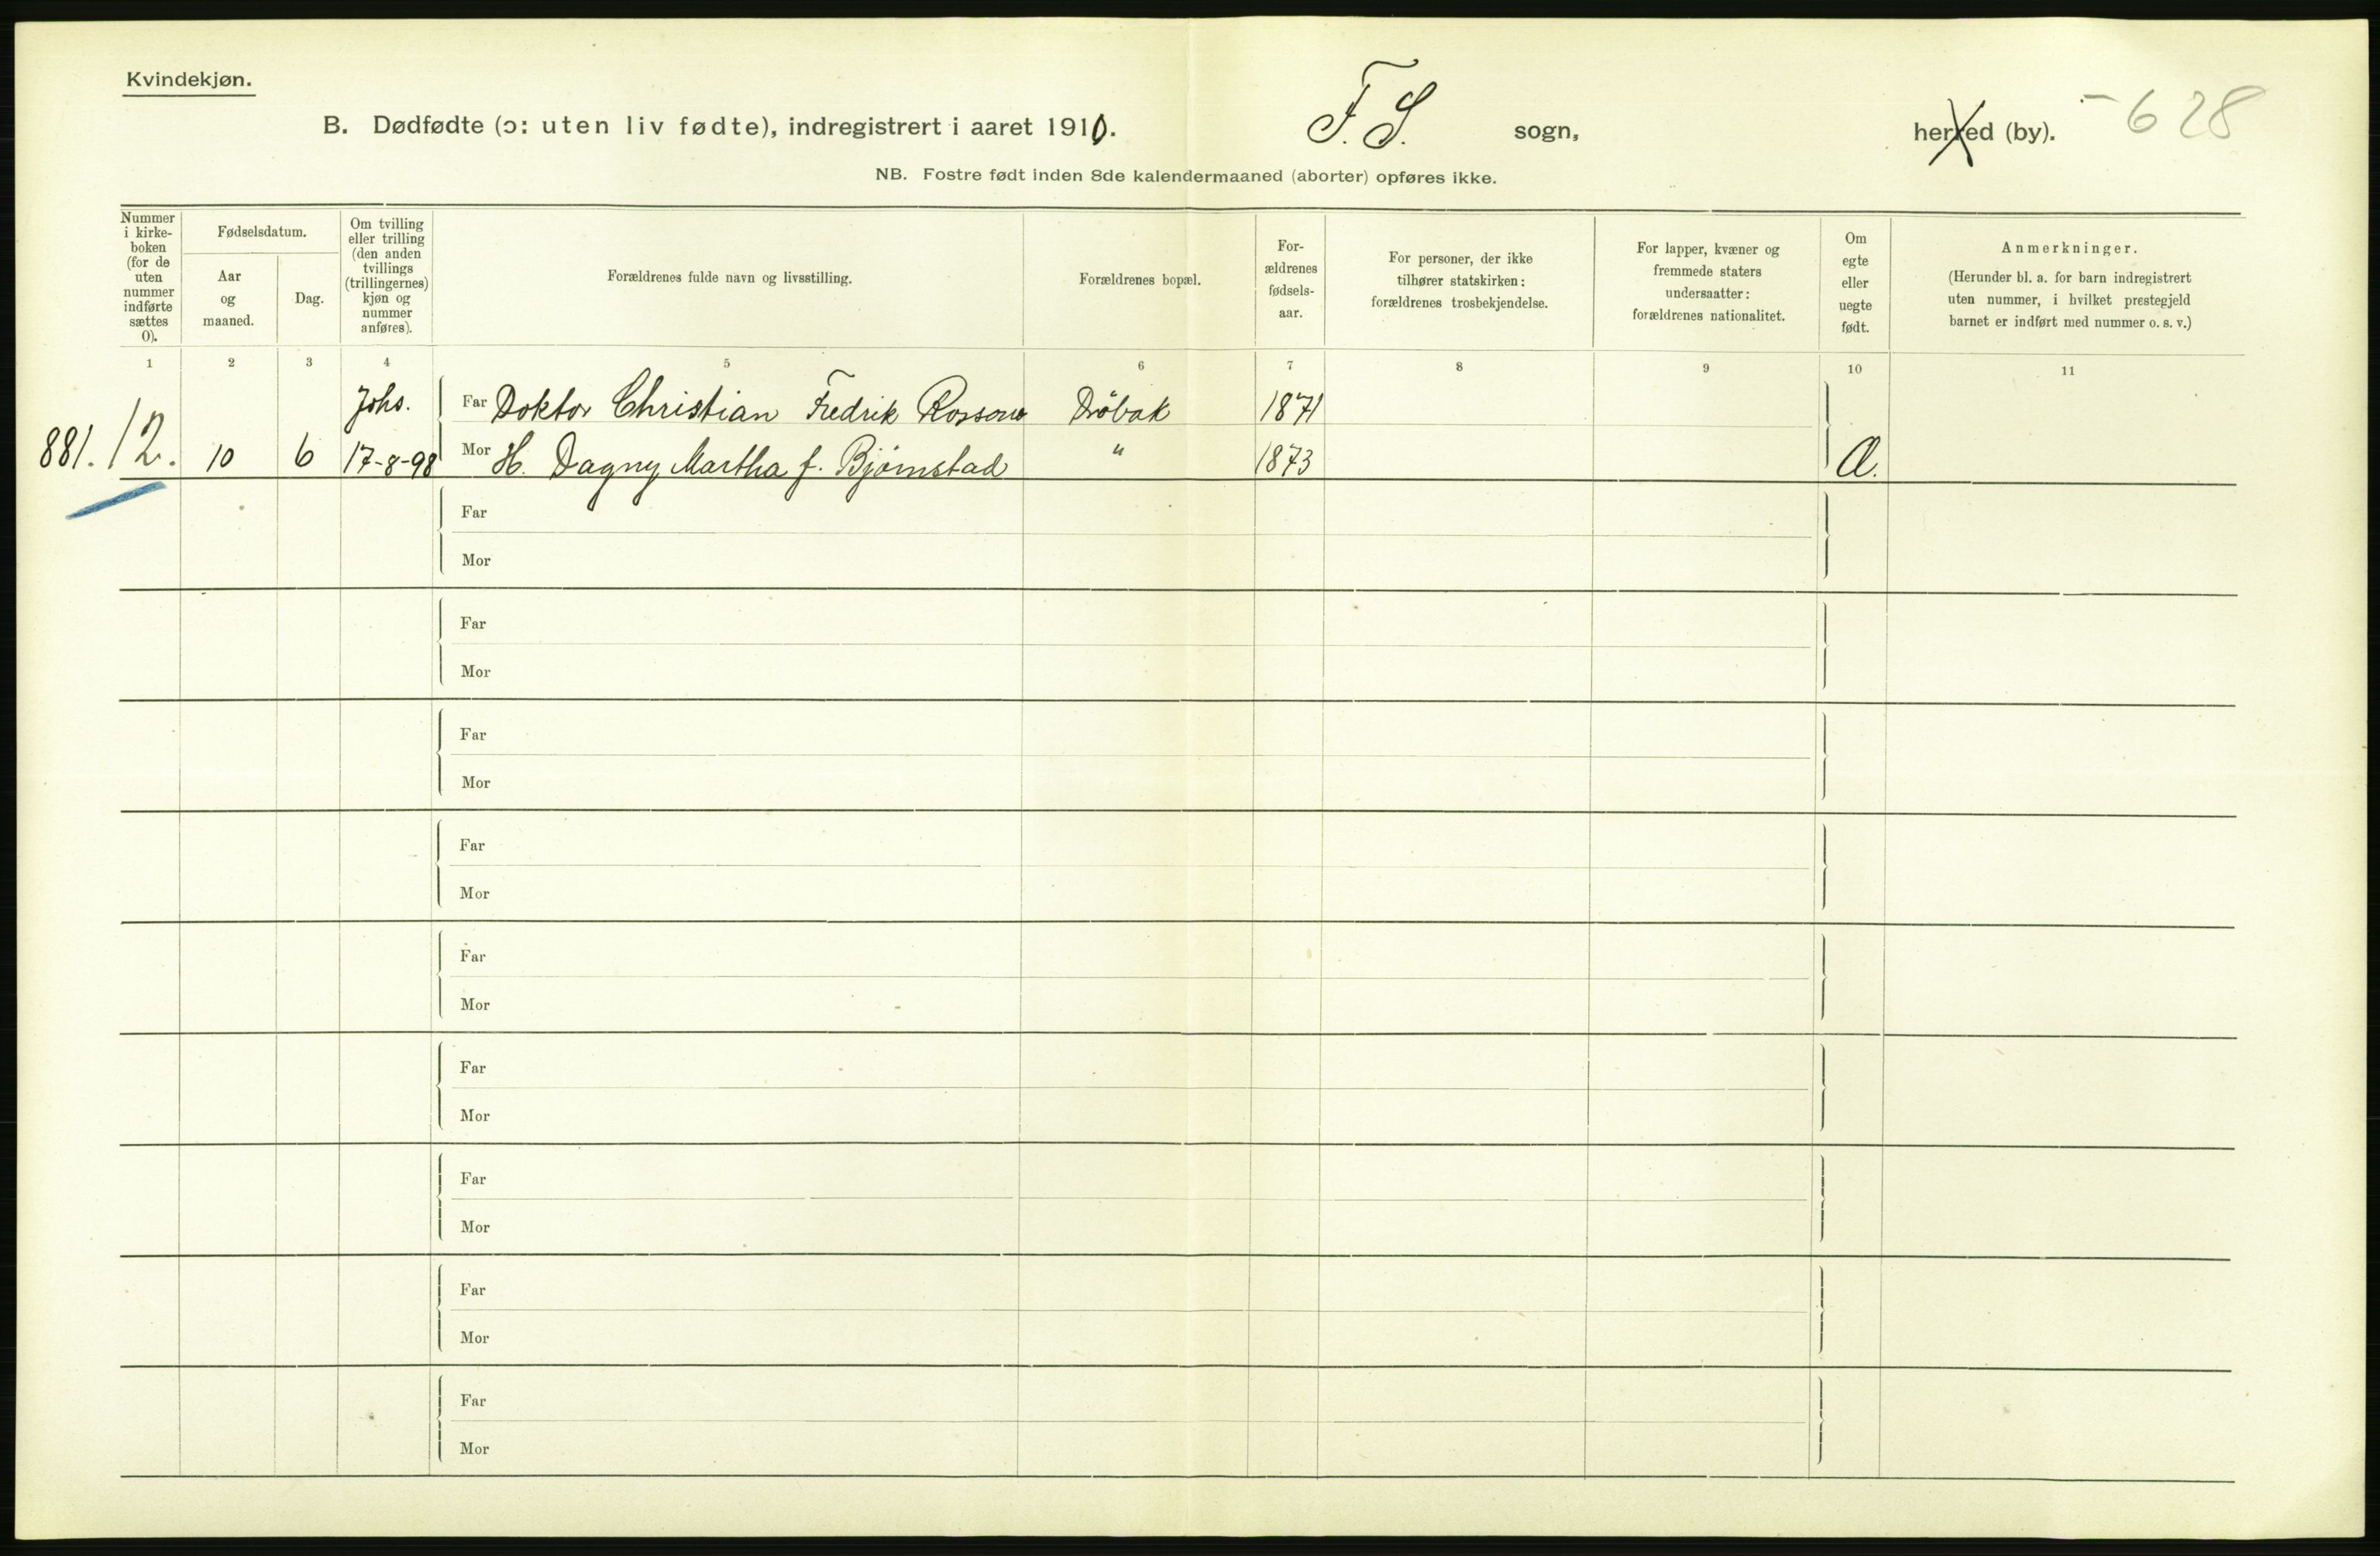 Kvindekjøn.
B. Dødfødte (ɔ: uten liv fødte), indregistrert i aaret 1910. F. S. sogn, herred (by). -628
NB. Fostre født inden 8de kalendermaaned (aborter) opføres ikke.
Nummer i kirke-boken (for de uten nummer indførte sættes 0).
Fødselsdatum.
Aar og maaned.
Dag.
Om tvilling eller trilling (den anden tvillings (trillingernes) kjøn og nummer anføres).
Forældrenes fulde navn og livsstilling.
Forældrenes bopæl.
For-ældrenes fødsels-aar.
For personer, der ikke tilhører statskirken: forældrenes trosbekjendelse.
For lapper, kvæner og fremmede staters undersaatter: forældrenes nationalitet.
Om egte eller uegte født.
Anmerkninger.
(Herunder bl. a. for barn indregistrert uten nummer, i hvilket prestegjeld barnet er indført med nummer o. s. v.)
1 2 3 4 5 6 7 8 9 10 11
Johs. Far Doktor Christian Fredrik Drøbak 1871
881. 12. 10 6 17-8-98 Mor H. Dagny Martha f. Bjørnstad " 1873
Far
Mor
Far
Mor
Far
Mor
Far
Mor
Far
Mor
Far
Mor
Far
Mor
Far
Mor
Far
Mor